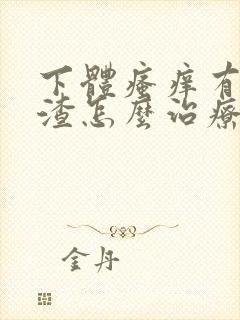 下體瘙痒有
渣怎麼治療
金丹